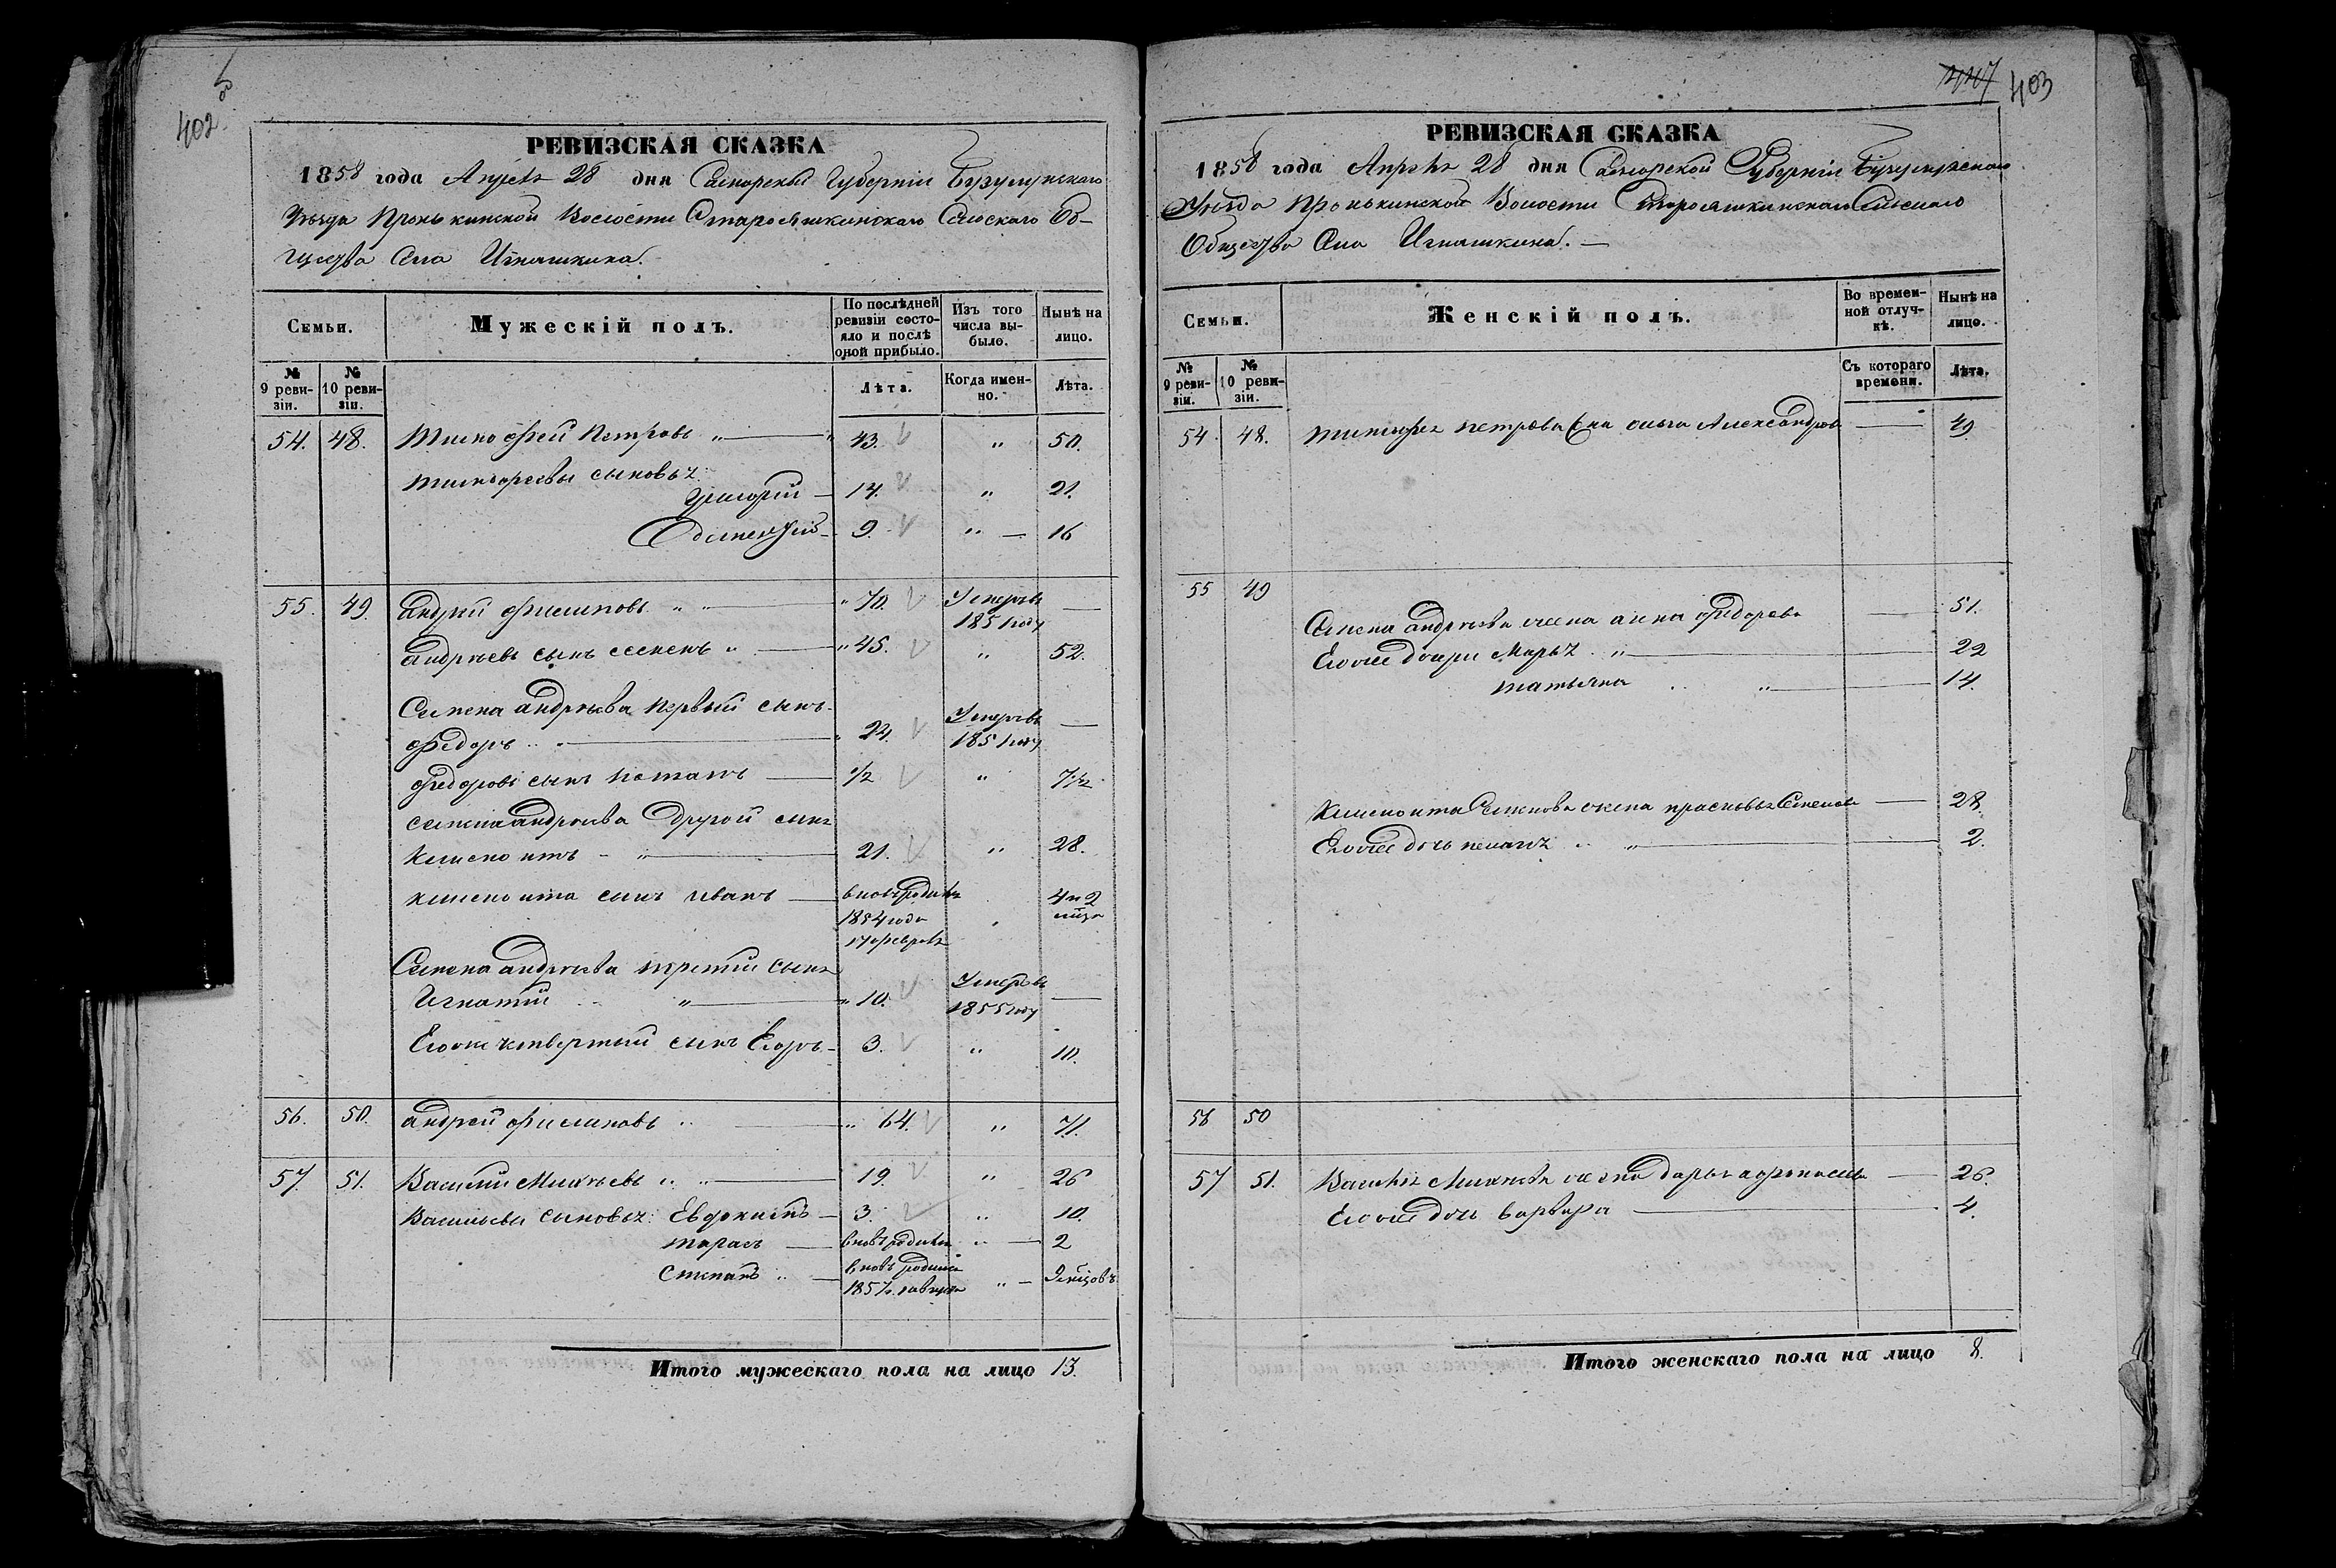 402.
РЕВИЗСКАЯ СКАЗКА
1858 года Апреля 28 дня Самарской Губерніи Бузулукскаго
Уезда Пронькинской Волости Старояшкинскаго Сельскаго Об-
щества Села Игнашкина.
Семьи.
Мужескій полъ.
По послѣдней ревизіи состо-яло и послѣ оной прибыло.
Изъ того числа вы-было.
Нынѣ на лицо.
№ 9 реви-зіи.
№ 10 реви-зіи.
Лѣта.
Когда имен-но.
Лѣта.
54. 48. Тимофей Петровъ „ 43. „ 50.
Тимофеевы сыновья:
Григорій 14. „ 21.
9. „ 16
55. 49. андрей филиповъ „ „ „ 70. Умеръ въ 1851 году —
андреевъ сынъ семенъ „ „ 45. „ 52.
Семена андреева первый сынъ
федоръ „ „ 24. Умеръ въ 1851 году —
федоровъ сынъ потапъ 1/2 „ 7 1/2
семена андреева другой сынъ
„ 21. „ 28.
сынъ иванъ вновь родился 1854 года 17 февраля „ 4 и 2 мца
Семена андреева третий сынъ
Игнатий „ „ 10. Умеръ въ 1855 году —
Его же четвертый сынъ Егоръ 3. „ 10.
56. 50. андрей филиповъ „ „ 64. „ 71.
57. 51. Василий Михеевъ „ „ 19. „ 26
Васильевы сыновья: Евдокимъ 3. „ 10.
тарасъ вновь родился „ 2
Степанъ „ вновь родился 1857 „ 9 месяцовъ
Итого мужескаго пола на лицо 13.
447 403
РЕВИЗСКАЯ СКАЗКА
1858 года Апреля 28 дня Самарской Губерніи Бузулукскаго
Уезда Пронькинской Волости Старояшкинскаго Сельскаго
Общества Села Игнашкина. —
Семьи.
Женскій полъ.
Во времен-ной отлуч-кѣ.
Нынѣ на лицо.
№ 9 реви-зіи.
№ 10 реви-зіи.
Съ котораго времени.
Лѣта.
54. 48. Тимофея петрова жена Александрова — 49
55 49
Семена андреева жена анна федорова — 51.
Его же дочери Марья „ 22
татьяна „ 14.
Семенова жена прасковья Семенова — 28.
Его же дочь пелагея „ 2.
56 50
57 51. Василья Михеева жена дарья афонасьева — 26.
Его же дочь варвара 4.
Итого женскаго пола на лицо 8.